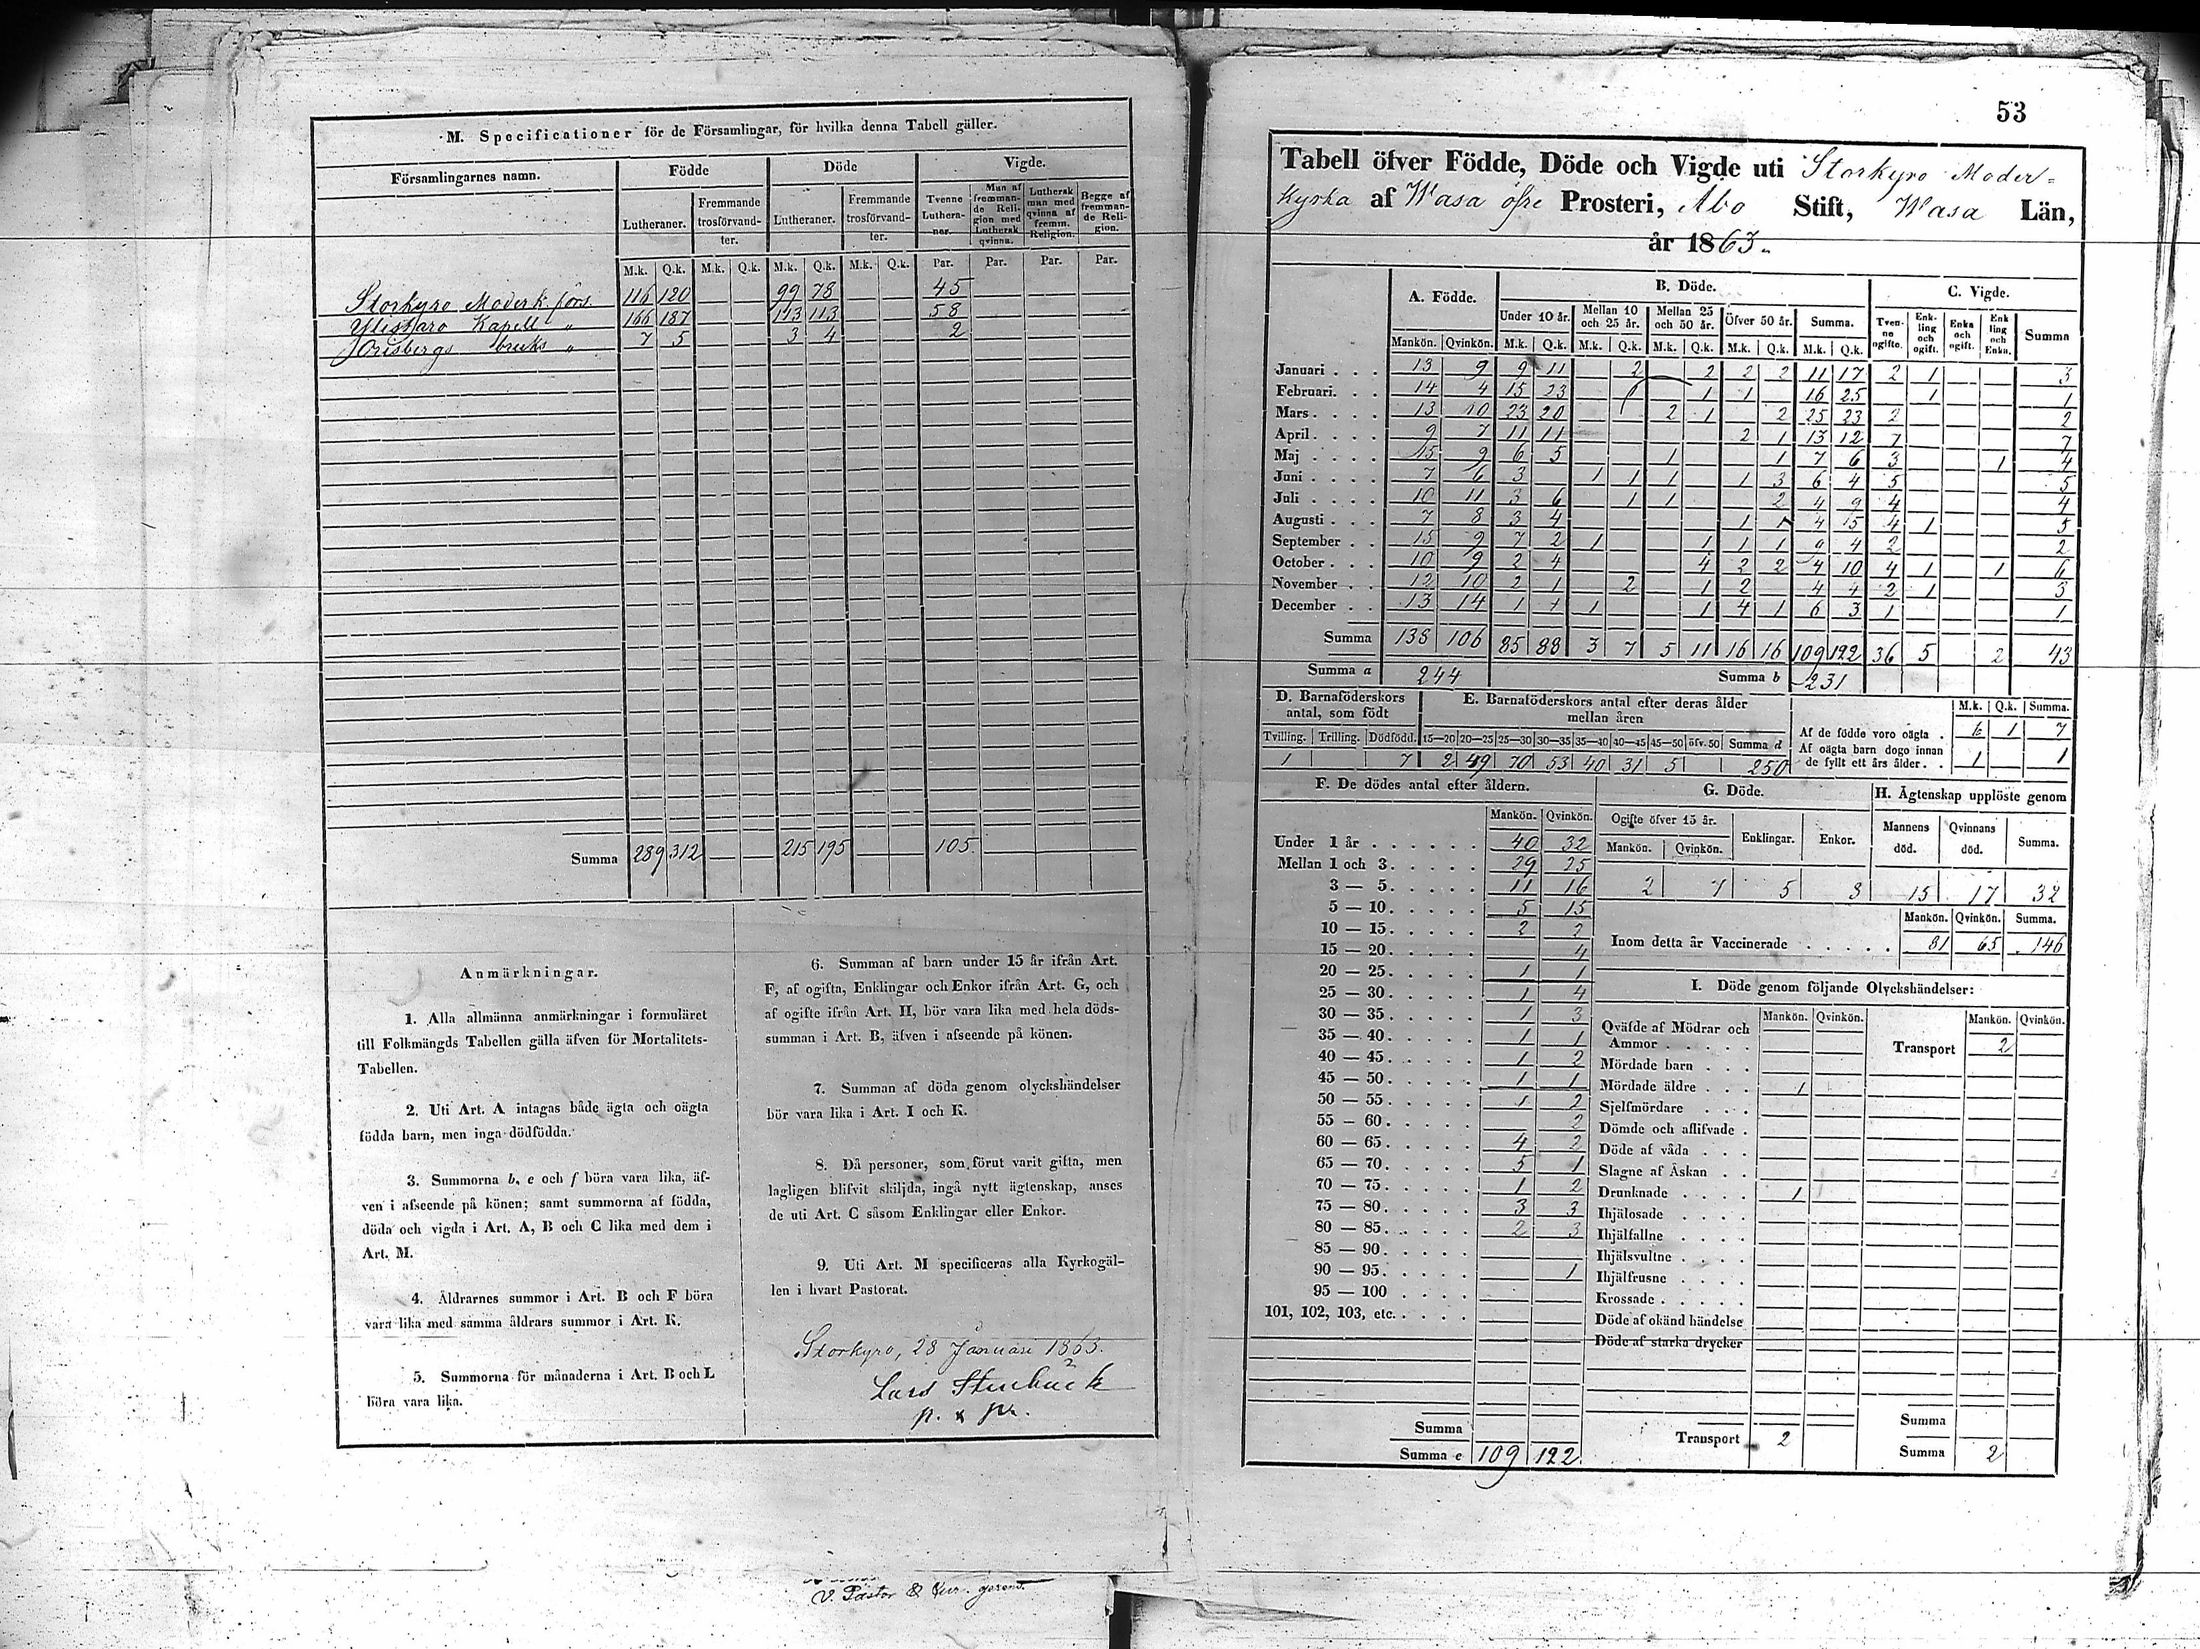 M. Specificationer för de Församlingar, för hvilka denna Tabell gäller.
Församlingarnes namn. Födde Döde Vigde.
Lutheraner. Fremmande trosförvandter. Lutheraner. Fremmande trosförvandter. Tvenne Lutheraner. Man af fremmande Religion med Luthersk qvinna. Luthersk man med qvinna af fremm. Religion. Begge af fremmande Religion.
M.k. Q.k. M.k. Q.k. M.k. Q.k. M.k. Q.k. Par. Par. Par. Par.
Storkyro Moderk. förs. 116 120 99 78 45
Ylistaro Kapell " 166 187 113 113 58
Orisbergs bruks " 7 5 3 4 2
Summa 289 312 215 195 105
Anmärkningar.
1. Alla allmänna anmärkningar i formuläret
till Folkmängds Tabellen gälla äfven för Mortalitets-
Tabellen.
2. Uti Art. A intagas både ägta och oägta
födda barn, men inga dödfödda.
3. Summorna b, e och f böra vara lika, äf-
ven i afseende på könen; samt summorna af födda,
döda och vigda i Art. A, B och C lika med dem i
Art. M.
4. Åldrarnes summor i Art. B och F böra
vara lika med samma åldrars summor i Art. K.
5. Summorna för månaderna i Art. B och L
böra vara lika.
6. Summan af barn under 15 år ifrån Art.
F, af ogifta, Enklingar och Enkor ifrån Art. G, och
af ogifte ifrån Art. H, bör vara lika med hela döds-
summan i Art. B, äfven i afseende på könen.
7. Summan af döda genom olyckshändelser
bör vara lika i Art. I och K.
8. Då personer, som förut varit gifta, men
lagligen blifvit skiljda, ingå nytt ägtenskap, anses
de uti Art. C såsom Enklingar eller Enkor.
9. Uti Art. M specificeras alla Kyrkogäl-
len i hvart Pastorat.
Storkyro, 28 Januari 1863.
Lars Stenbäck
p. & pr.
V. Pastor & Cur. gerens.
53
Tabell öfver Födde, Döde och Vigde uti Storkyro Moder-
kyrka af Wasa öfre Prosteri, Åbo Stift, Wasa Län,
år 1863.
A. Födde. B. Döde. C. Vigde.
Under 10 år. Mellan 10 och 25 år. Mellan 25 och 50 år. Öfver 50 år. Summa. Tvenne ogifte. Enkling och ogift. Enka och ogift. Enkling och Enka. Summa
Mankön. Qvinkön. M.k. Q.k. M.k. Q.k. M.k. Q.k. M.k. Q.k. M.k. Q.k.
Januari 13 9 9 11 2 2 2 2 11 17 2 1 3
Februari 14 4 15 23 1 1 1 16 25 1 1
Mars 13 10 23 20 2 1 2 25 23 2 2
April 9 7 11 11 2 1 13 12 7 7
Maj 15 9 6 5 1 1 7 6 3 1 4
Juni 7 6 3 1 1 1 1 3 6 4 5 5
Juli 10 11 3 6 1 1 2 4 9 4 4
Augusti 7 8 3 4 1 1 4 15 4 1 5
September 15 9 7 2 1 1 1 1 9 4 2 2
October 10 9 2 4 4 2 2 4 10 4 1 1 6
November 12 10 2 1 2 1 2 4 4 2 1 3
December 13 14 1 1 1 1 4 1 6 3 1 1
Summa 138 106 85 88 3 7 5 11 16 16 109 122 36 5 2 43
Summa a 244 Summa b 231
D. Barnaföderskors antal, som födt
Tvilling. Trilling. Dödfödd.
1 7
E. Barnaföderskors antal efter deras ålder mellan åren
15—20 20—25 25—30 30—35 35—40 40—45 45—50 öfv. 50 Summa d
2 49 70 53 40 31 5 250
M.k. Q.k. Summa.
Af de födde voro oägta 6 1 7
Af oägta barn dogo innan
de fyllt ett års ålder 1 1
F. De dödes antal efter åldern.
Mankön. Qvinkön.
Under 1 år 40 32
Mellan 1 och 3 29 25
3 — 5 11 16
5 — 10 5 15
10 — 15 2 2
15 — 20 4
20 — 25 1 1
25 — 30 1 4
30 — 35 1 3
35 — 40 1 1
40 — 45 1 2
45 — 50 1 1
50 — 55 1 2
55 — 60 2
60 — 65 4 2
65 — 70 5 1
70 — 75 1 2
75 — 80 3 3
80 — 85 2 3
85 — 90
90 — 95 1
95 — 100
101, 102, 103, etc.
Summa
Summa e 109 122
G. Döde.
Ogifte öfver 15 år. Enklingar. Enkor.
Mankön. Qvinkön.
2 7 5 8
H. Ägtenskap upplöste genom
Mannens död. Qvinnans död. Summa.
15 17 32
Mankön. Qvinkön. Summa.
Inom detta år Vaccinerade 81 65 146
I. Döde genom följande Olyckshändelser:
Mankön. Qvinkön. Mankön. Qvinkön.
Qväfde af Mödrar och
Ammor Transport 2
Mördade barn
Mördade äldre 1
Sjelfmördare
Dömde och aflifvade
Döde af våda
Slagne af Åskan
Drunknade 1
Ihjälosade
Ihjälfallne
Ihjälsvultne
Ihjälfrusne
Krossade
Döde af okänd händelse
Döde af starka drycker
Summa
Transport 2 Summa 2